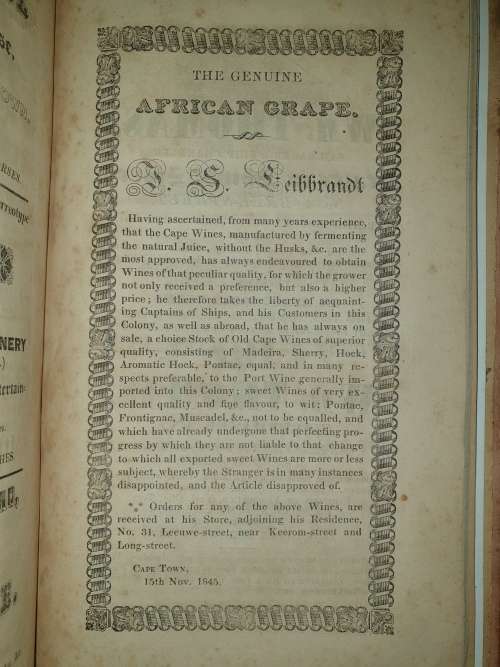 THE GENUINE
AFRICAN GRAPE.
J. S. Leibbrandt
Having ascertained, from many years experience,
that the Cape Wines, manufactured by fermenting
the natural Juice, without the Husks, &c. are the
most approved, has always endeavoured to obtain
Wines of that peculiar quality, for which the grower
not only received a preference, but also a higher
price; he therefore takes the liberty of acquaint-
ing Captains of Ships, and his Customers in this
Colony, as well as abroad, that he has always on
sale, a choice Stock of Old Cape Wines of superior
quality, consisting of Madeira, Sherry, Hock,
Aromatic Hock, Pontac, equal, and in many re-
spects preferable, to the Port Wine generally im-
ported into this Colony; sweet Wines of very ex-
cellent quality and fine flavour, to wit; Pontac,
Frontignac, Muscadel, &c., not to be equalled, and
which have already undergone that perfecting pro-
gress by which they are not liable to that change
to which all exported sweet Wines are more or less
subject, whereby the Stranger is in many instances
disappointed, and the Article disapproved of.
*** Orders for any of the above Wines, are
received at his Store, adjoining his Residence,
No. 31, Leeuwe-street, near Keerom-street and
Long-street.
CAPE TOWN,
15th Nov. 1845.